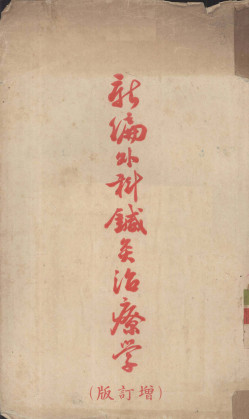 新编外科鍼灸治療学
（增訂版）